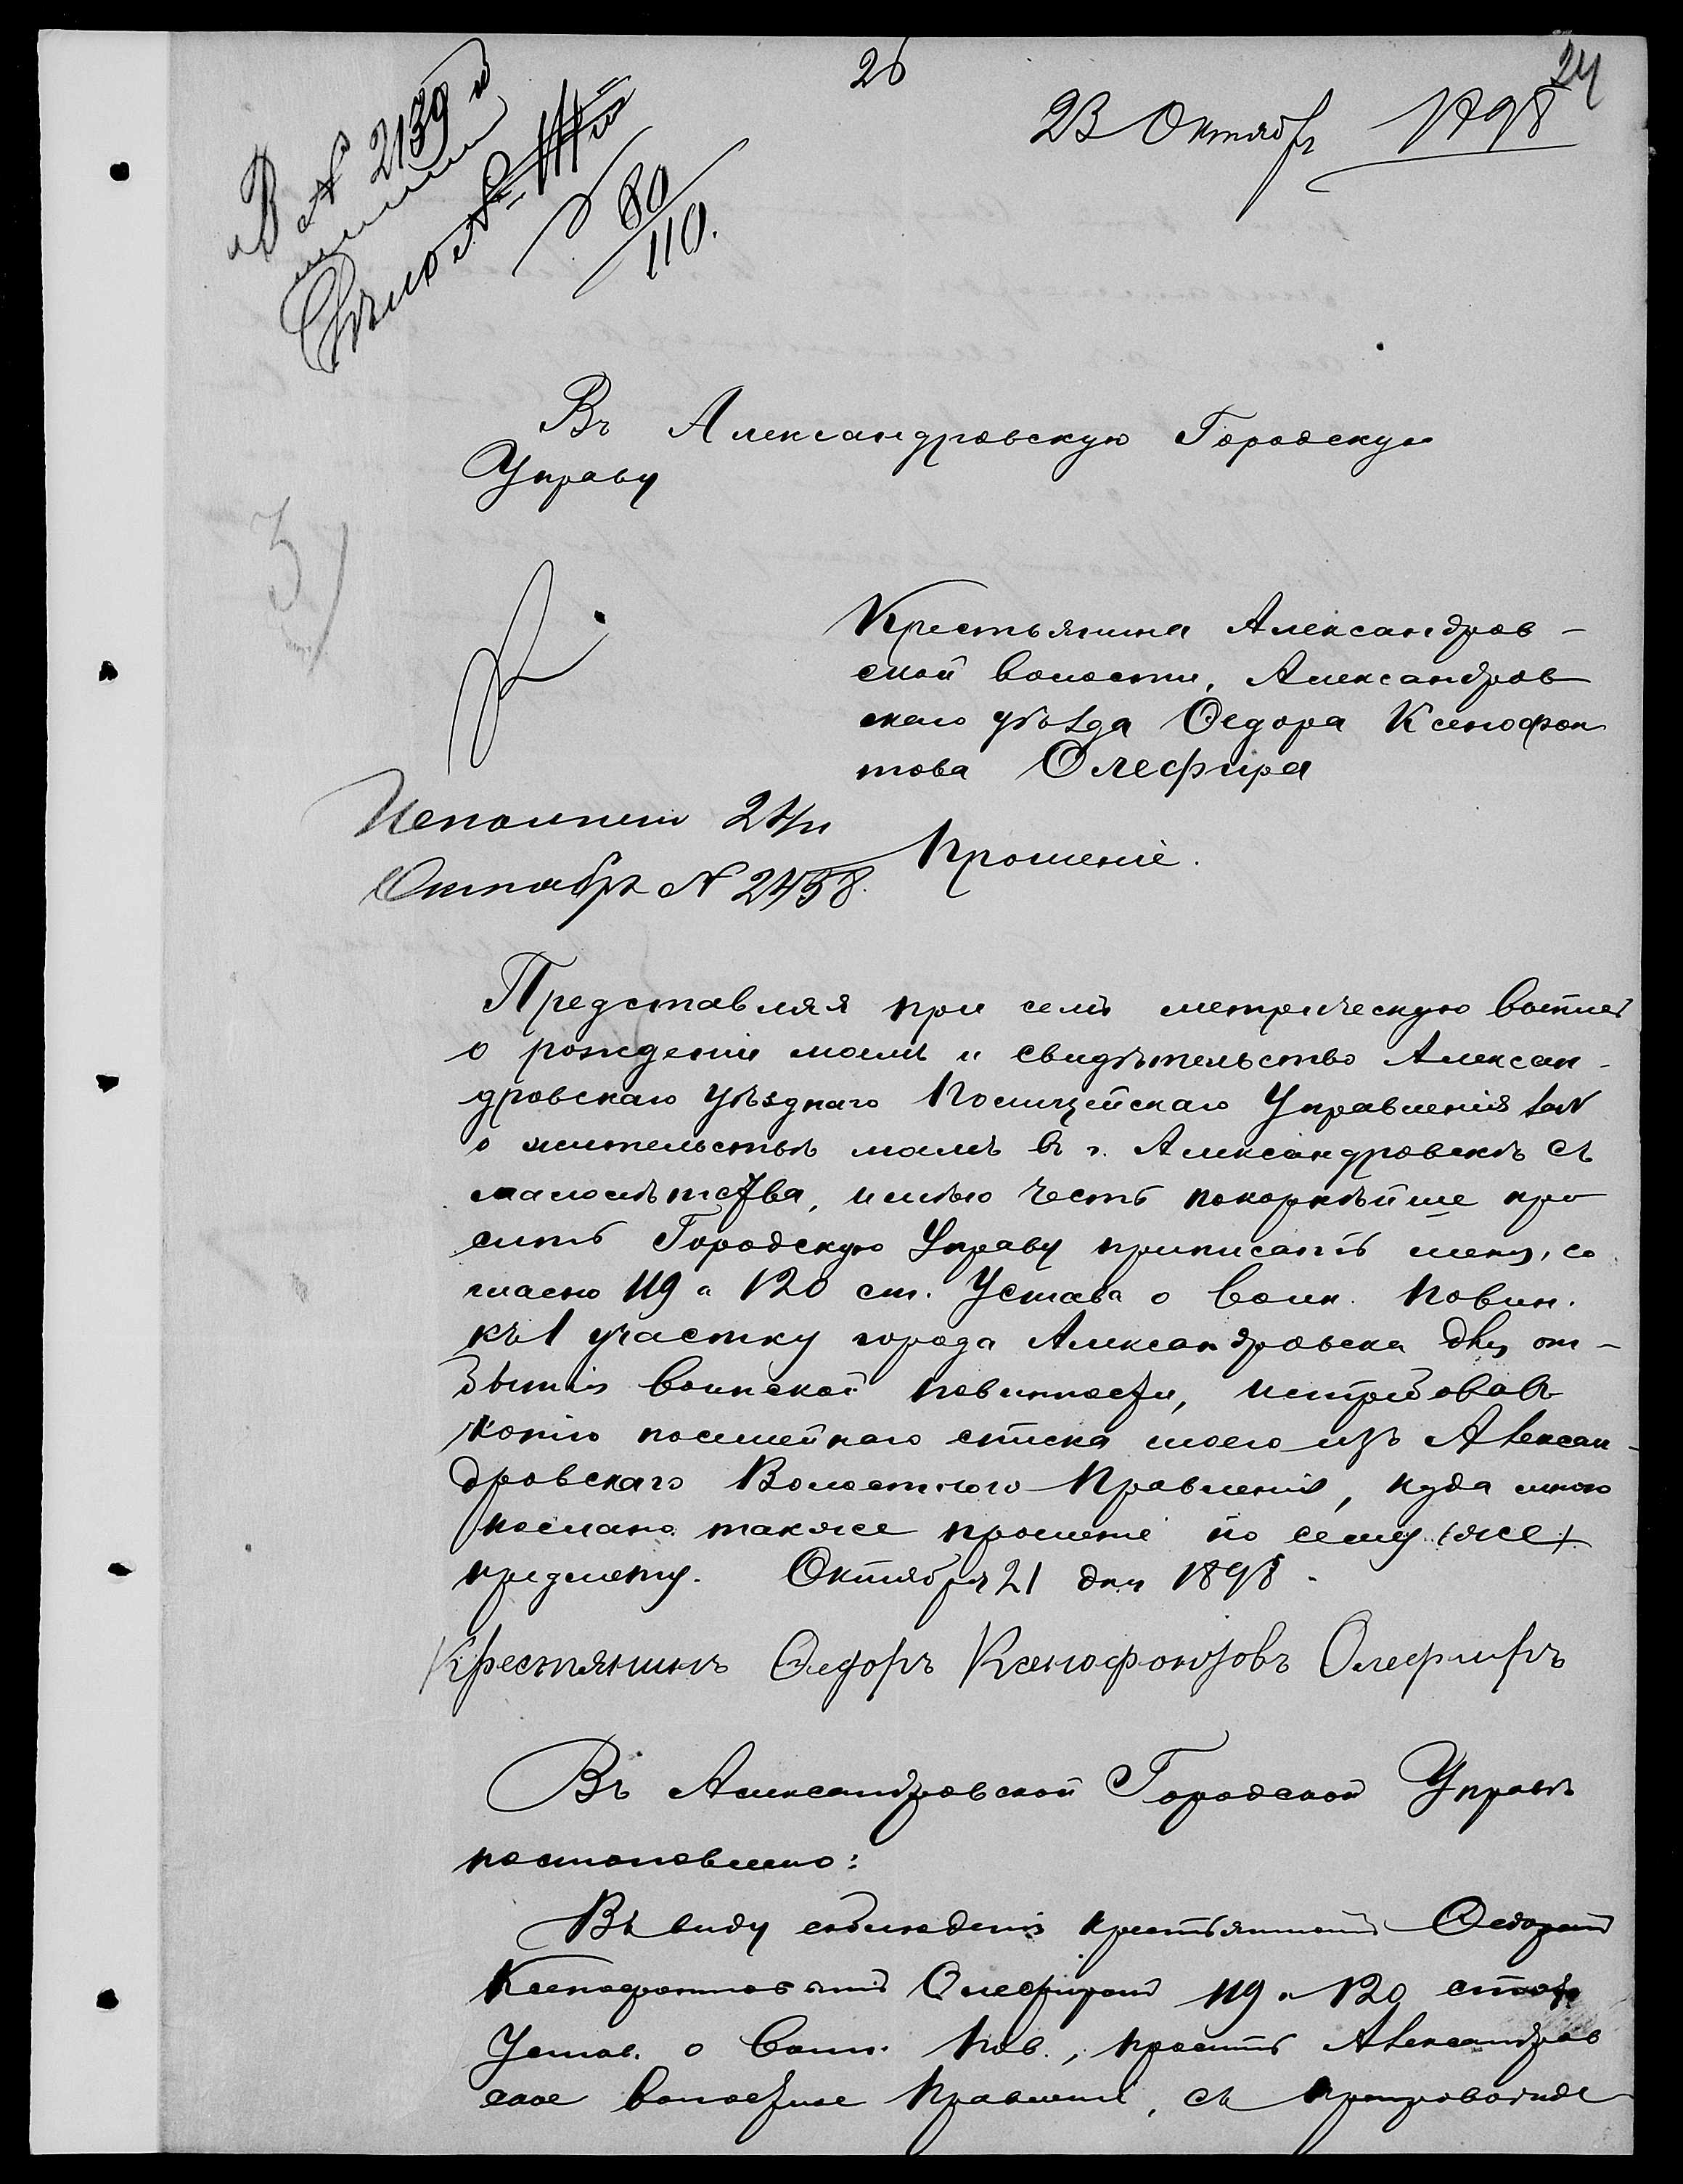 26
24
23 Октябр 1898
В № 2139
80
110.
Въ Александровскую Городскую
Управу
3)
Крестьянина Александров-
ской волости, Александров
скаго уѣзда Ѳедора Ксенофон
това Олефира
Исполнено 24/
Октября № 2458.
Прошеніе.
Представляя при семъ метрическую выпись
о рожденіи моемъ и свидѣтельство Алексан-
дровскаго Уѣзднаго Полицейскаго Управленія за №
о жительствѣ моемъ въ г. Александровскѣ съ
малолѣтства, имѣю честь покорнѣйше про
сить Городскую Управу приписать меня, со
гласно 119 и 120 ст. Устава о воин. повин.
къ 1 участку города Александровска для от-
бытія воинской повинности, истребовавъ
копію посемейнаго списка моего изъ Алексан-
дровскаго Волостного Правленія, куда мною
послано также прошеніе по сему же
предмету. Октября 21 дня 1898.
Крестянинъ Ѳедоръ Ксенофонтовъ Олефиръ
Въ Александровской Городской Управѣ
постановлено:
Въ виду соблюденія крестьяниномъ Ѳедоромъ
Ксенофонтовымъ Олефиромъ 119 и 120 ст
Устав. о Воин. Пов., просить Александров
ское волостное Правленіе, съ препровожде